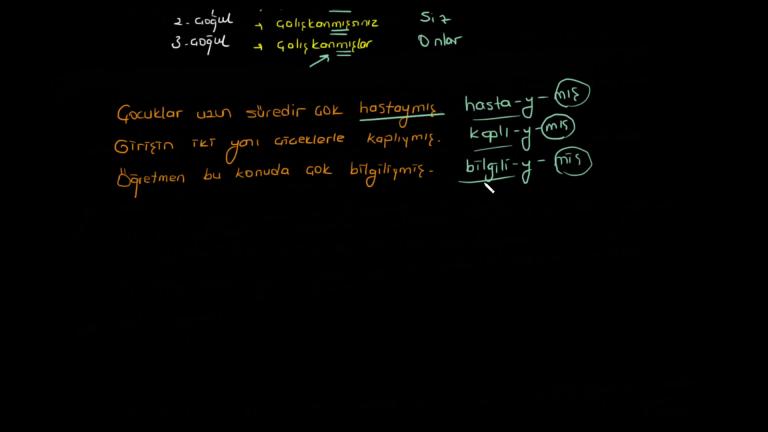 2. çoğul → çalışkanmışsınız Siz
3. çoğul → çalışkanmışlar Onlar
Çocuklar uzun süredir çok hastaymış hasta-y-mış
Girişin iki yanı çiçeklerle kaplıymış. kaplı-y-mış
Öğretmen bu konuda çok bilgiliymiş. bilgili-y-miş